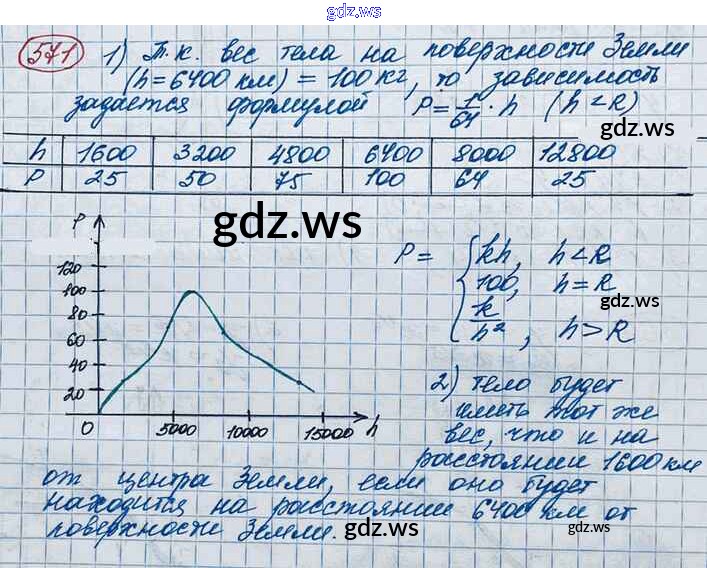 gdz.ws
571 1) Т.к. вес тела на поверхности Земли
(h=6400 км) = 100 кг, то зависимость
задается формулой P=1/64·h (h<R)
gdz.ws
h 1600 3200 4800 6400 8000 12800
P 25 50 75 100 64 25
gdz.ws
P
120
100
80
60
40
20
0 5000 10000 15000 h
P = { kh, h<R
100, h=R
gdz.ws
k/h², h>R
2) тело будет
иметь тот же
вес, что и на
расстоянии 1600 км
от центра Земли, если оно будет
находится на расстоянии 6400 км от
поверхности Земли.
gdz.ws
gdz.ws